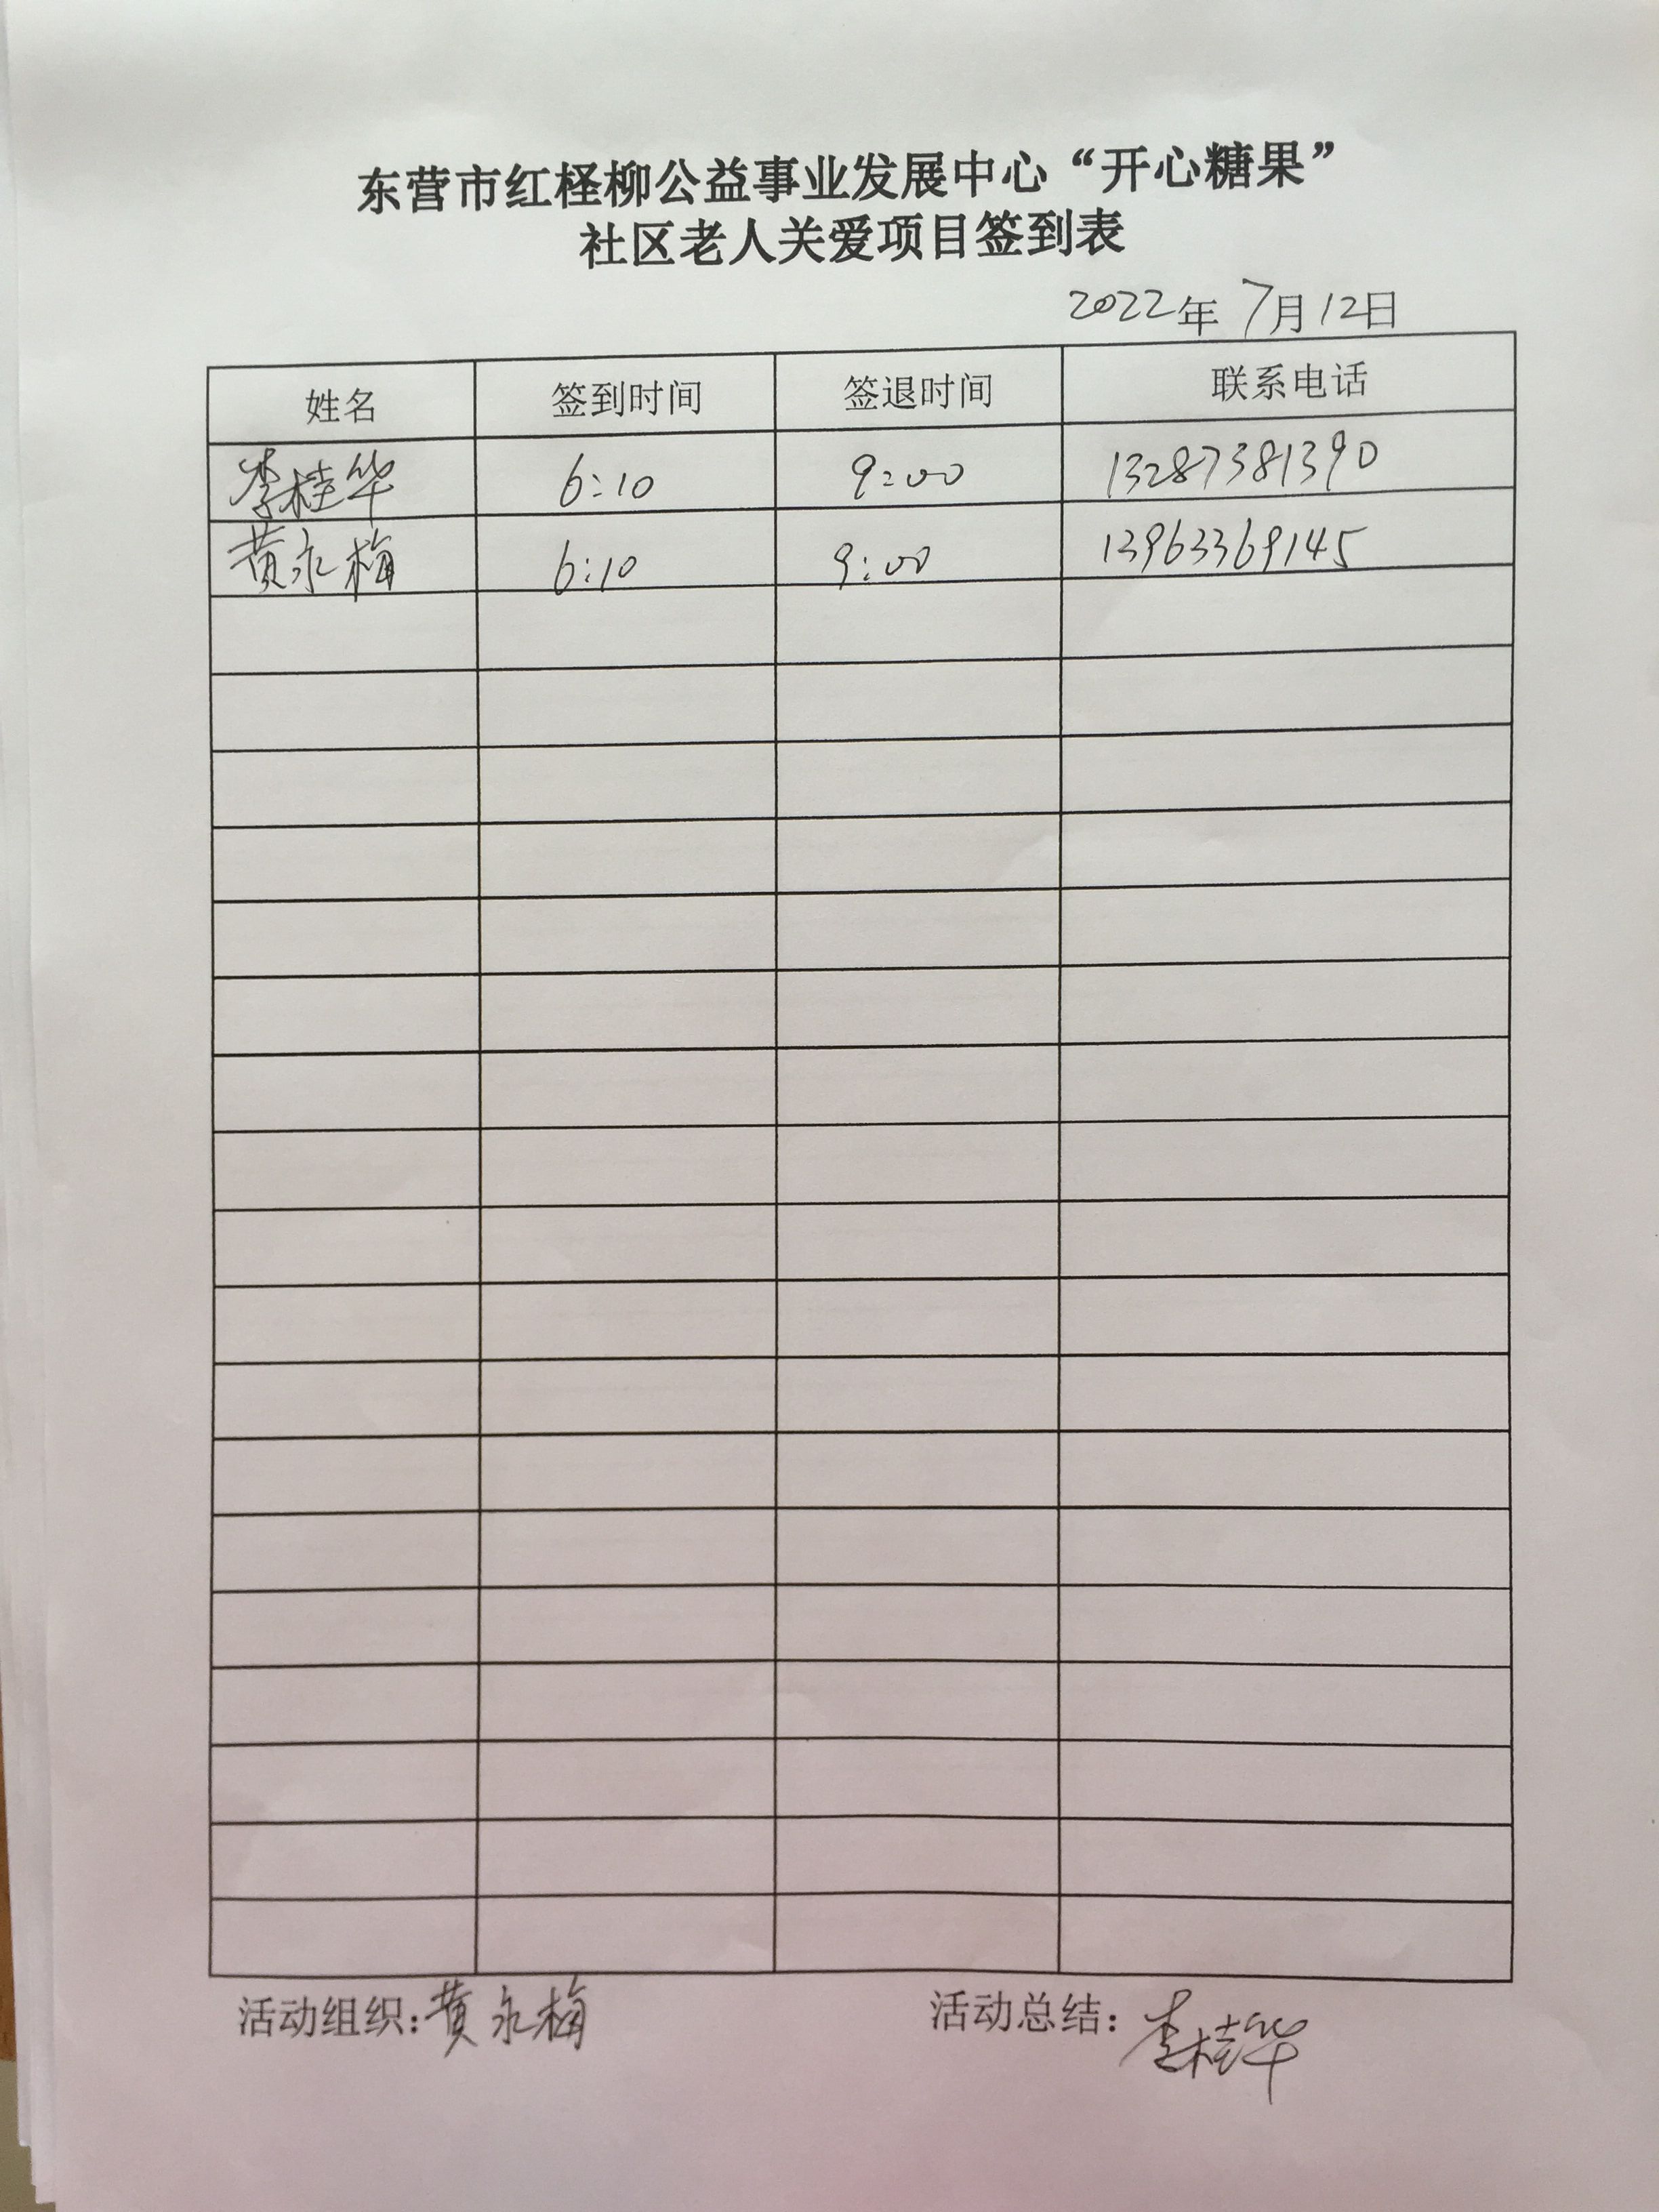 东营市红柽柳公益事业发展中心“开心糖果”
社区老人关爱项目签到表
2022年 7月12日
姓名 签到时间 签退时间 联系电话
李桂华 6:10 9:00 13287381390
黄永梅 6:10 9:00 13963369145
活动组织:黄永梅 活动总结:李桂华